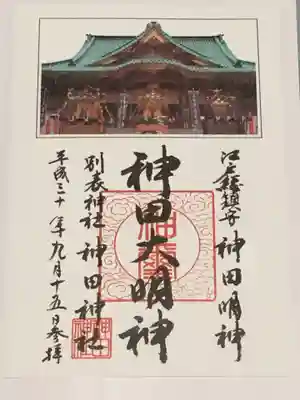 江戸総鎮守 神田明神
神田大明神
別表神社 神田神社
平成三十年九月十五日参拝